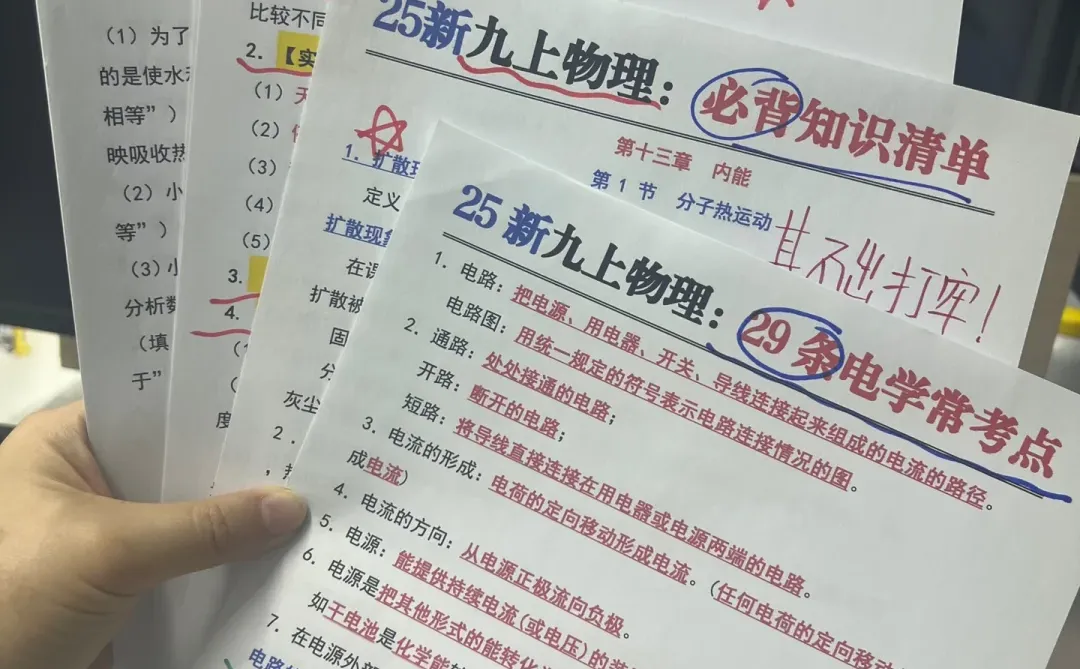 （1）为了
的是使水
相等”）
映吸收热
（2）小
等”）
（3）小
分析数
（填
于”
比较不同
2.【实
（1）天
（2）
（3）
（4）
（5）
3.
4.
度
25新九上物理：必背知识清单
第十三章 内能
第 1 节 分子热运动
其不出打牢！
1. 扩散现
定义
扩散现象
在
扩散被
固
分
灰尘
2.
25 新九上物理：29 条电学常考点
1. 电路：把电源、用电器、开关、导线连接起来组成的电流的路径。
电路图：用统一规定的符号表示电路连接情况的图。
2. 通路：处处接通的电路；
开路：断开的电路；
短路：将导线直接连接在用电器或电源两端的电路。
3. 电流的形成：电荷的定向移动形成电流。（任何电荷的定向移动
成电流）
4. 电流的方向：从电源正极流向负极。
5. 电源：能提供持续电流(或电压)的装
6. 电源是把其他形式的能转化
如干电池是化学能
7. 在电源外部
电路